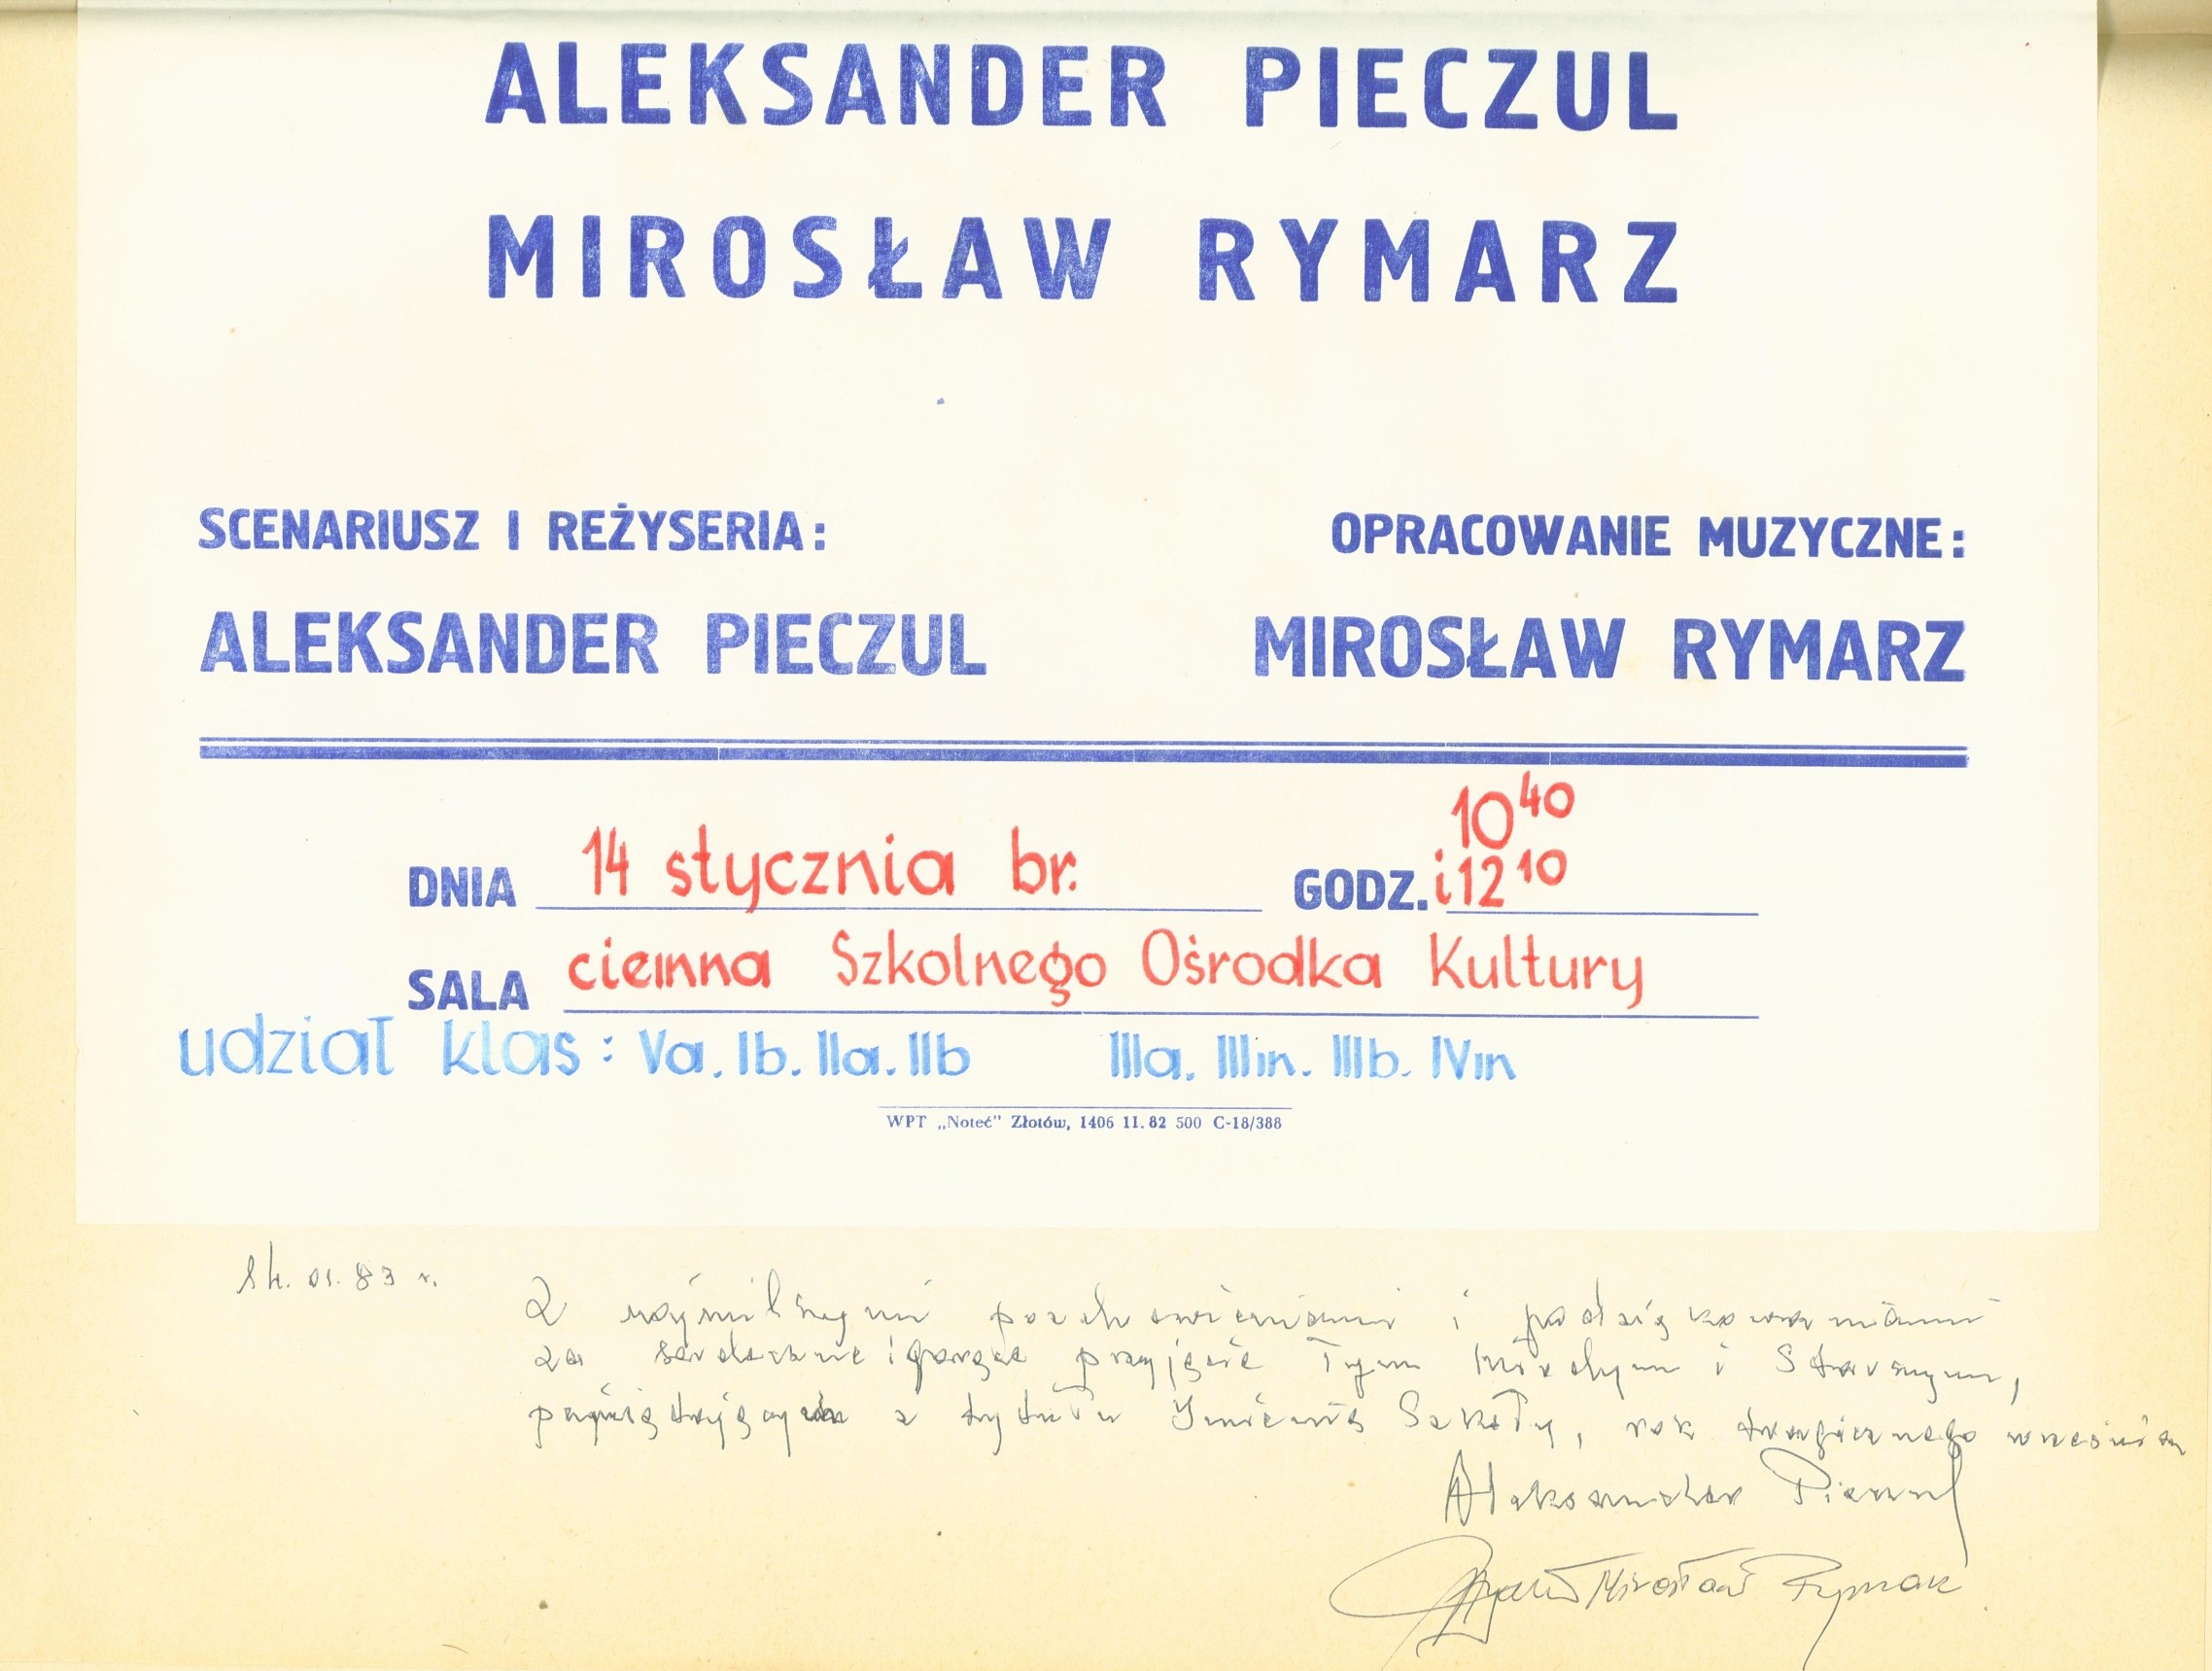 ALEKSANDER PIECZUL
MIROSŁAW RYMARZ
SCENARIUSZ I REŻYSERIA:
OPRACOWANIE MUZYCZNE:
ALEKSANDER PIECZUL
MIROSŁAW RYMARZ
DNIA 14 stycznia br. GODZ. 10 40
i 12 10
SALA ciemna Szkolnego Ośrodka Kultury
udział klas: Va. Ib. IIa. IIb IIIa. IIIm. IIIb. IVm
WPT „Noteć” Złotów, 1406 11.82 500 C-18/388
14.01.83 r.
Z najmilszymi pozdrowieniami i podziękowaniami
za serdeczne i gorące przyjęcie Tym Młodym i Starszym,
z tytułu Imienia Szkoły, rok tragicznego września
Aleksander Pieczul
Mirosław Rymarz